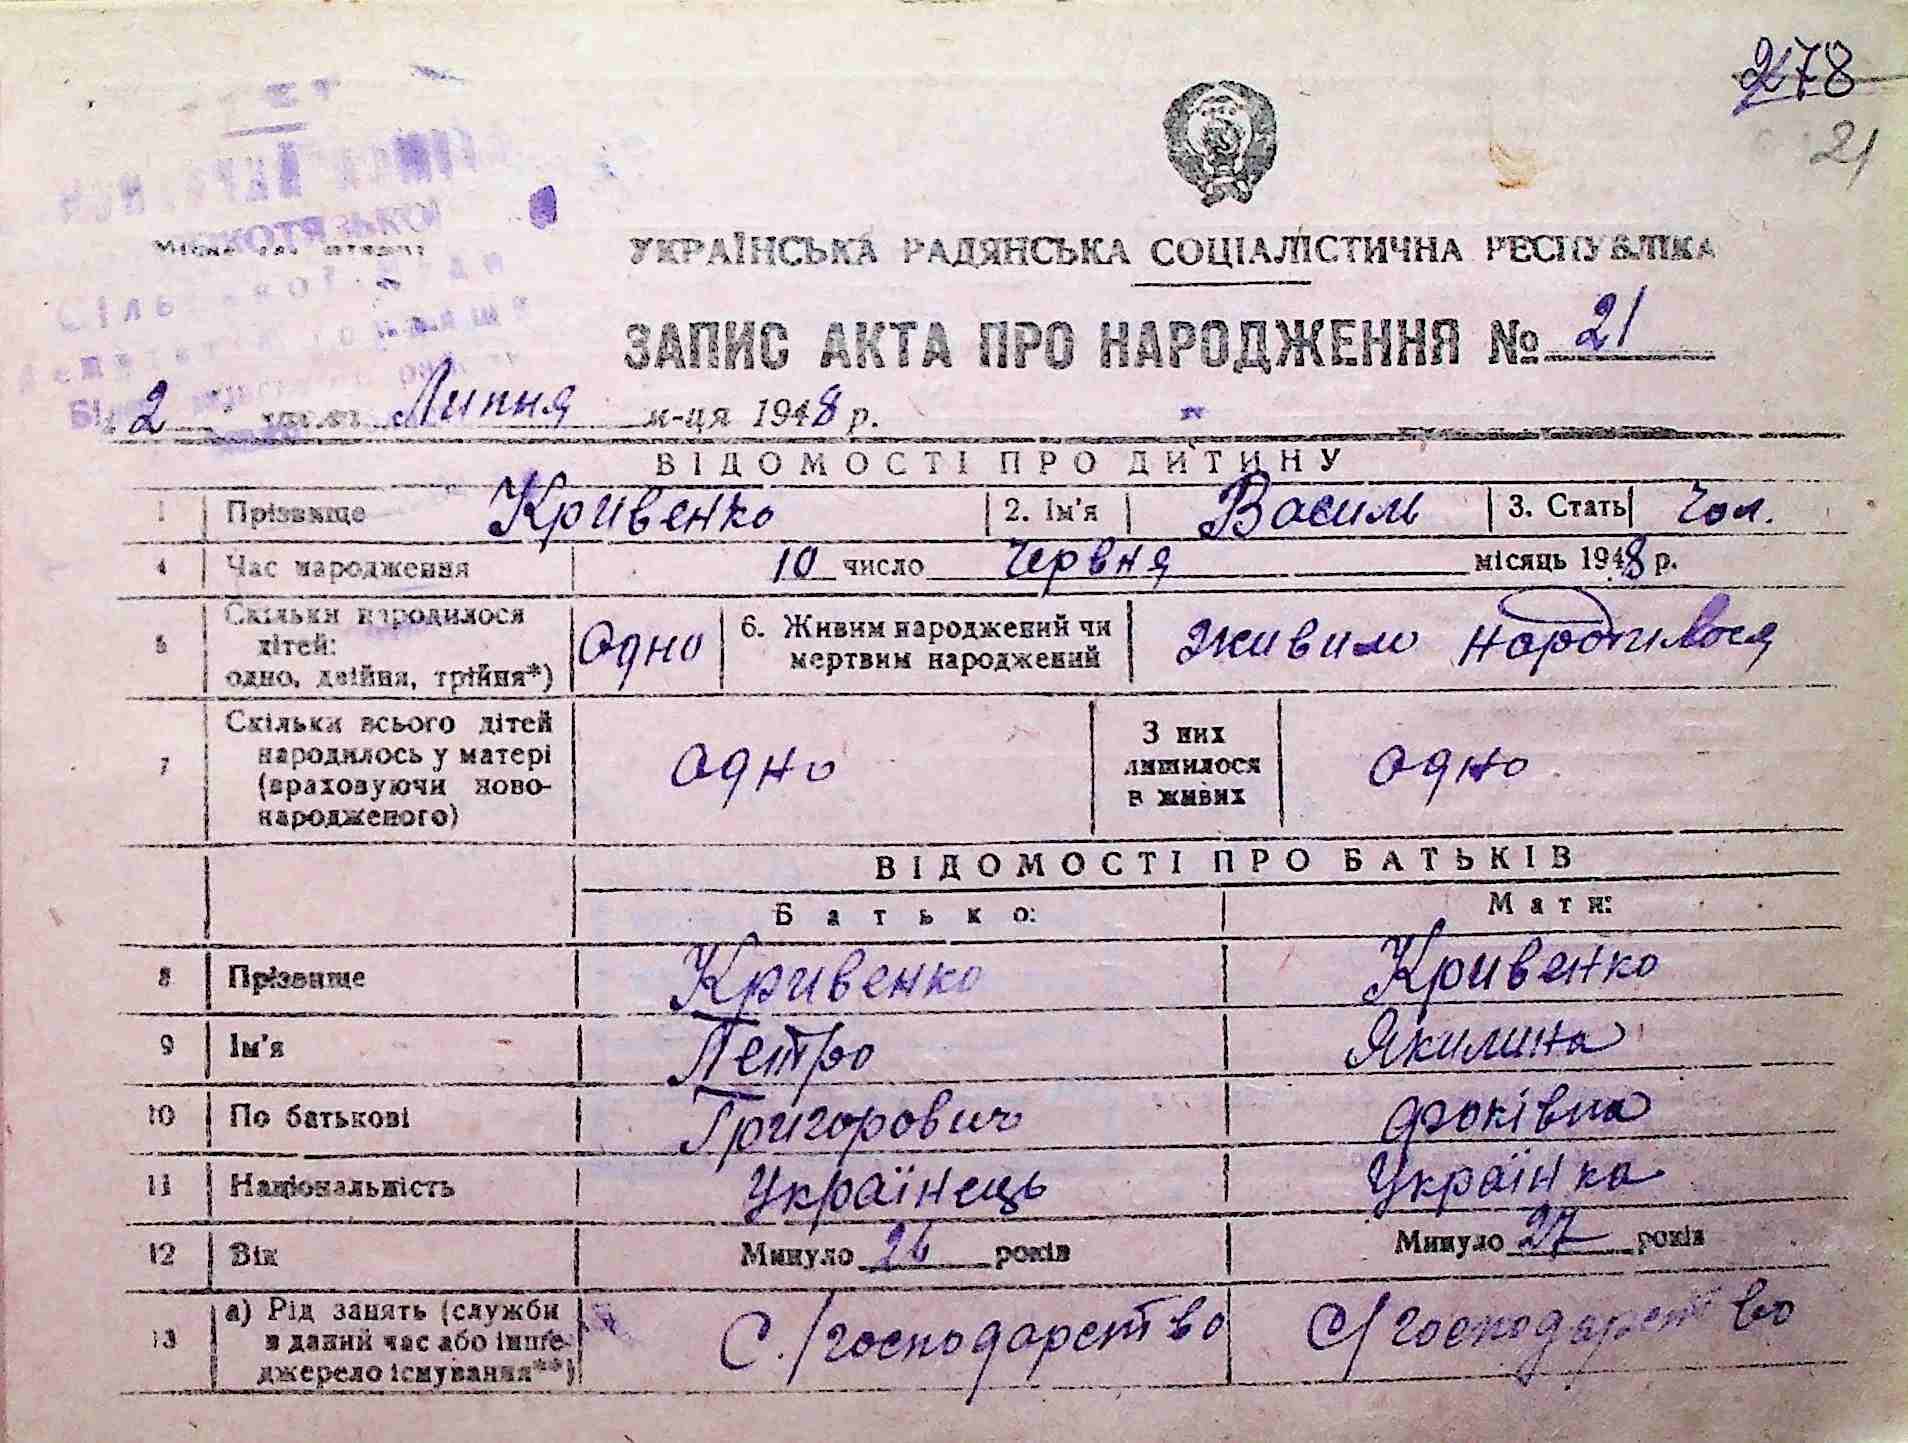 278
21
УКРАЇНСЬКА РАДЯНСЬКА СОЦІАЛІСТИЧНА РЕСПУБЛІКА
ЗАПИС АКТА ПРО НАРОДЖЕННЯ № 21
2 Липня м-ця 1948 р.
ВІДОМОСТІ ПРО ДИТИНУ
1 Прізвище Кривенко 2. Ім'я Василь 3. Стать Чол.
4 Час народження 10 число Червня місяць 1948 р.
5 Скільки народилося дітей: одно, двійня, трійня*) Одно 6. Живим народжений чи мертвим народжений живим народилося
7 Скільки всього дітей народилось у матері (враховуючи новонародженого) одно З них лишилося в живих одно
ВІДОМОСТІ ПРО БАТЬКІВ
Батько: Мати:
8 Прізвище Кривенко Кривенко
9 Ім'я Петро Якилина
10 По батькові Григорович Фоківна
11 Національність Українець Українка
12 Вік Минуло 26 років Минуло 27 років
13 а) Рід занять (служби в даний час або інше джерело існування**) С./господарство С/господарство